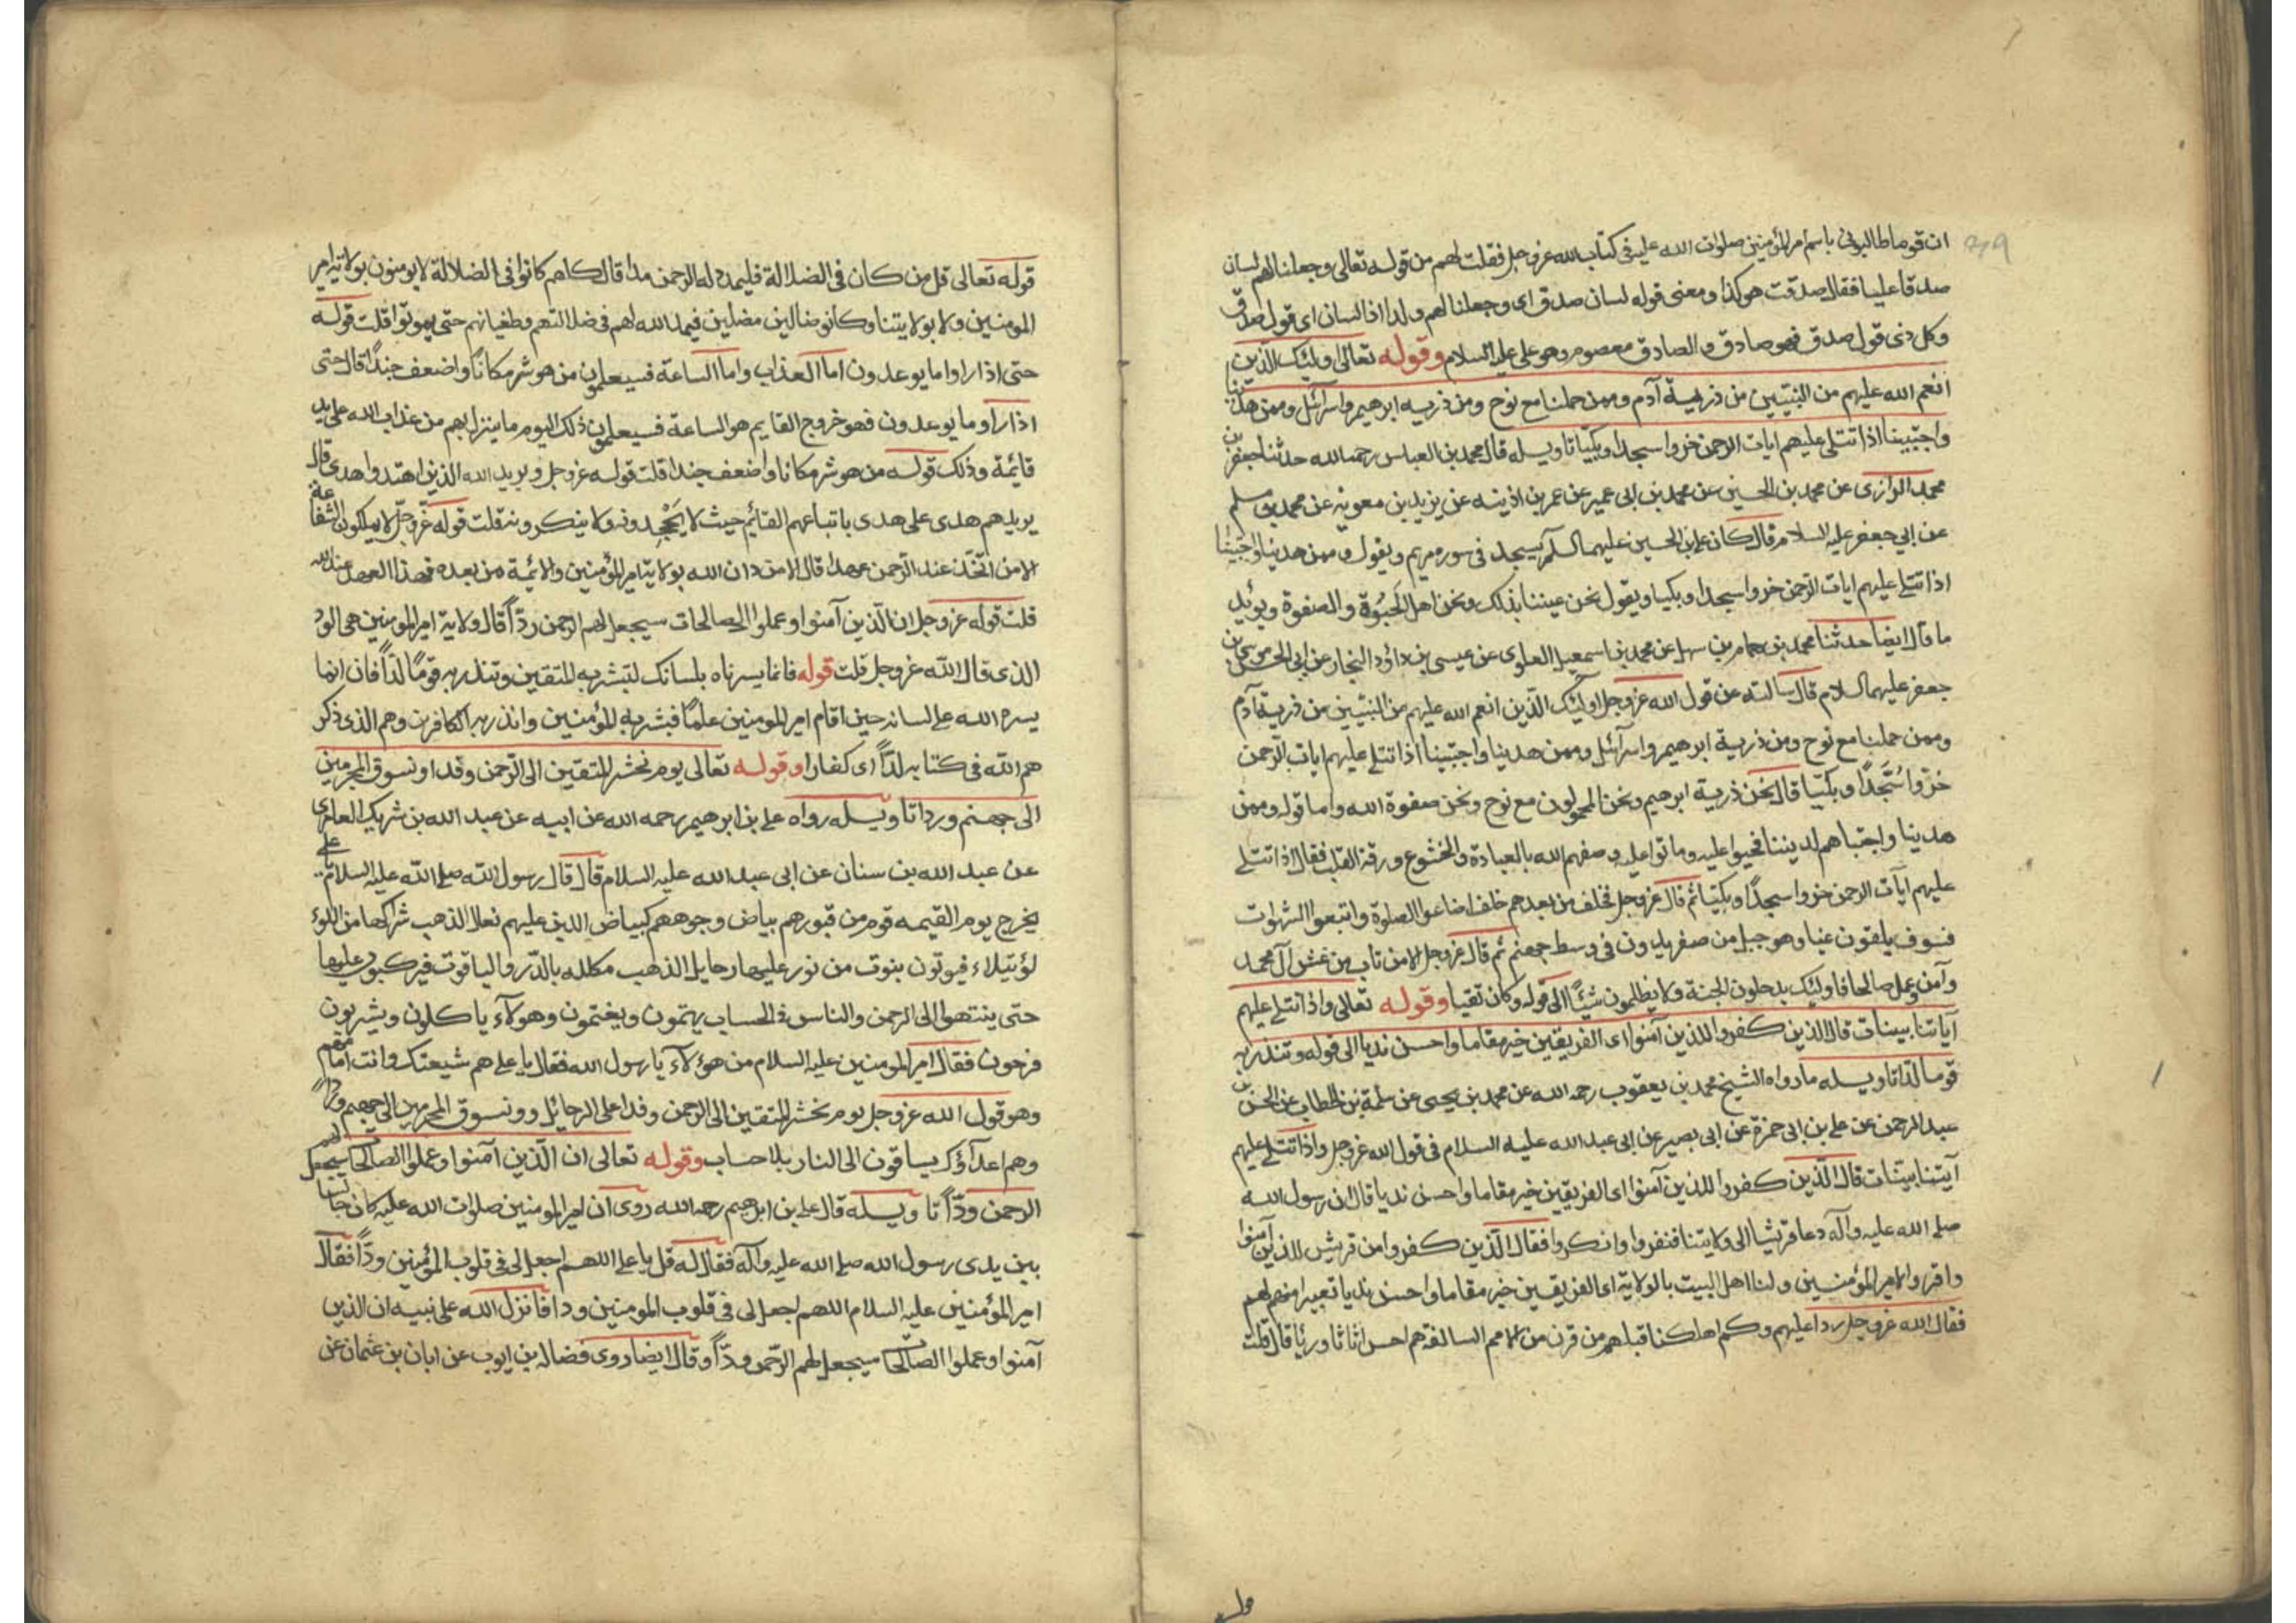 ان قوما طالبونی باسم امیر المؤمنین صلوات الله علیه فی کتاب الله عز وجل فقلت لهم من قوله تعالی وجعلنا لهم لسان
صدق علیا فقال صدقت هو کذا ومعنی قوله لسان صدق ای وجعلنا لهم ولدا اذا لسان ای قول صدق
وکل ذی قول صدق فهو صادق والصادق معصوم وهو علی علیه السلام وقوله تعالی اولیک الذین
انعم الله علیهم من النبیین من ذریة آدم وممن حملنا مع نوح ومن ذریه ابرهیم واسرائل وممن هدینا
واجتبینا اذا تتلی علیهم ایات الرحمن خروا سجدا وبکیا تاویله قال محمد بن العباس رحمه الله حدثنا جعفر بن
محمد الرازی عن محمد بن الحسین عن محمد بن ابی عمیر عن عمر بن اذینه عن یزید بن معویة عن محمد بن مسلم
عن ابی جعفر علیه السلام قال کان علی بن الحسین علیهما السلم یسجد فی سوره مریم ویقول وممن هدینا واجتبینا
اذا تتلی علیهم ایات الرحمن خروا سجدا وبکیا ویقول نحن عیننا بذلک ونحن اهل الحبوة والصفوة ویؤید
ما قال ایضا حدثنا محمد بن همام بن سهل عن محمد بن اسمعیل العلوی عن عیسی بن داؤد النجار عن ابی الحسن موسی بن
جعفر علیهما السلام قال سالته عن قول الله عز وجل اولئک الذین انعم الله علیهم من النبیین من ذریة آدم
وممن حملنا مع نوح ومن ذریة ابرهیم واسرائل وممن هدینا واجتبینا اذا تتلی علیهم ایات الرحمن
خروا سُجَّدًا وبکیّا قال نحن ذریة ابرهیم ونحن المحمولون مع نوح ونحن صفوة الله واما قوله وممن
هدینا واجتباهم لدیننا فحیوا علیه وماتوا علیه وصفهم الله بالعبادة والخشوع ورقة القلب فقال اذا تتلی
علیهم آیات الرحمن خروا سجدًا وبکیّا ثم قال عز وجل فخلف من بعدهم خلف اضاعوا الصلوة واتبعوا الشهوات
فسوف یلقون غیا وهو جبل من صفر یدور فی وسط جهنم ثم قال عز وجل الا من تاب من غش آل محمد
وآمن وعمل صالحا فاولیک یدخلون الجنة ولا یظلمون شیئًا الی قوله وکان تقیا وقوله تعالی واذا تتلی علیهم
آیاتنا بینات قال الذین کفروا للذین آمنوا ای الفریقین خیر مقاما واحسن ندیا الی قوله وتنذر به
قوما لدا تاویله ما رواه الشیخ محمد بن یعقوب رحمه الله عن محمد بن یحیی عن سلمة بن خطاب عن الحسن بن
عبد الرحمن عن علی بن ابی حمزة عن ابی بصیر عن ابی عبد الله علیه السلام فی قول الله عز وجل واذا تتلی علیهم
آیتنا بینات قال الذین کفروا للذین آمنوا ای الفریقین خیر مقاما واحسن ندیا قال ان رسول الله
صلی الله علیه وآله دعا قریشا الی ولایتنا فنفروا وانکروا فقال الذین کفروا من قریش للذین آمنوا
واقروا لامیر المؤمنین ولنا اهل البیت بالولایة ای الفریقین خیر مقاما واحسن ندیا تعییرا منهم لهم
فقال الله عز وجل ردا علیهم وکم اهلکنا قبلهم من قرن من الامم السالفة هم احسن اثاثا ورئیا قال قلت
قوله تعالی قل من کان فی الضلالة فلیمدد له الرحمن مدا قال کلهم کانوا فی الضلالة لا یومنون بولایة امیر
المومنین ولا بولایتنا وکانوا ضالین مضلین فیمد الله لهم فی ضلالتهم وطغیانهم حتی یموتوا قلت قوله
حتی اذا راوا ما یوعدون اما العذاب واما الساعة فسیعلمون من هو شر مکانًا واضعف جندًا قال حتی
اذا راو ما یوعدون فهو خروج القایم هو الساعة فسیعلمون ذلک الیوم ما ینزل بهم من عذاب الله علی ید
قائیمة وذلک قوله من هو شر مکانا واضعف جندا قلت قوله عز وجل ویرید الله الذین اهتدوا هدی قال
یریدهم هدی علی هدی باتباعهم القائیم حیث لا یجحدونه ولا ینکرونه قلت قوله عز وجل لا یملکون الشفاعة
الا من اتخذ عند الرحمن عهدا قال الا من دان الله بولایة امیر المؤمنین والائیمة من بعده فهذا العهد عند الله
قلت قوله عز وجل ان الذین آمنوا وعملوا الصالحات سیجعل لهم الرحمن ودّاً قال ولایة امیر المومنین هی الود
الذی قال الله عز وجل قلت قوله فانما یسرناه بلسانک لتبشر به المتقین وتنذر به قومًا لدًا فان انما
یسره الله علی لسانه حین اقام امیر المومنین علمًا فبشر به المؤمنین وانذر به الکافرین وهم الذی ذکر
هم الله فی کتابه لدّاً ای کفارا وقوله تعالی یوم نحشر المتقین الی الرحمن وفدا ونسوق المجرمین
الی جهنم وردا تاویله رواه علی بن ابرهیم رحمه الله عن ابیه عن عبد الله بن شریک العامری
عن عبد الله بن سنان عن ابی عبد الله علیه السلام قال قال رسول الله صلی الله علیه السلام یا علی
یخرج یوم القیمه قوم من قبورهم بیاض وجوههم کبیاض اللبن علیهم نعال الذهب شراکها من اللؤ
لؤ یتیلاء فیوتون بنوق من نور علیها رحایل الذهب مکلله بالدّر والیاقوت فیرکبون علیها
حتی ینتهوا الی الرحمن والناس فی الحساب یهتمون ویغتمون وهولآء یاکلون ویشربون
فرحون فقال امیر المومنین علیه السلام من هؤلآء یا رسول الله فقال یا علی هم شیعتک وانت امامهم
وهو قول الله عز وجل یوم نحشر المتقین الی الرحمن وفدا علی الرحائل وونسوق المجرمین الی جهنم وردًا
وهم اعدآؤک یساقون الی النار بلا حساب وقوله تعالی ان الذین آمنوا وعملوا الصالحات سیجعل لهم
الرحمن ودّاً تاویله قال علی بن ابرهیم رحمه الله روی ان امیر المومنین صلوات الله علیه کان جالسا
بین یدی رسول الله صلی الله علیه وآله فقال له قل یا علی اللهم اجعل لی فی قلوب المؤمنین ودّاً فقال
امیر المؤمنین علیه السلام اللهم اجعل لی فی قلوب المومنین ودا فانزل الله علی نبیه ان الذین
آمنوا وعملوا الصالحات سیجعل لهم الرحمن ودّاً وقال ایضا روی فضاله بن ایوب عن ابان بن عثمان عن
قوله